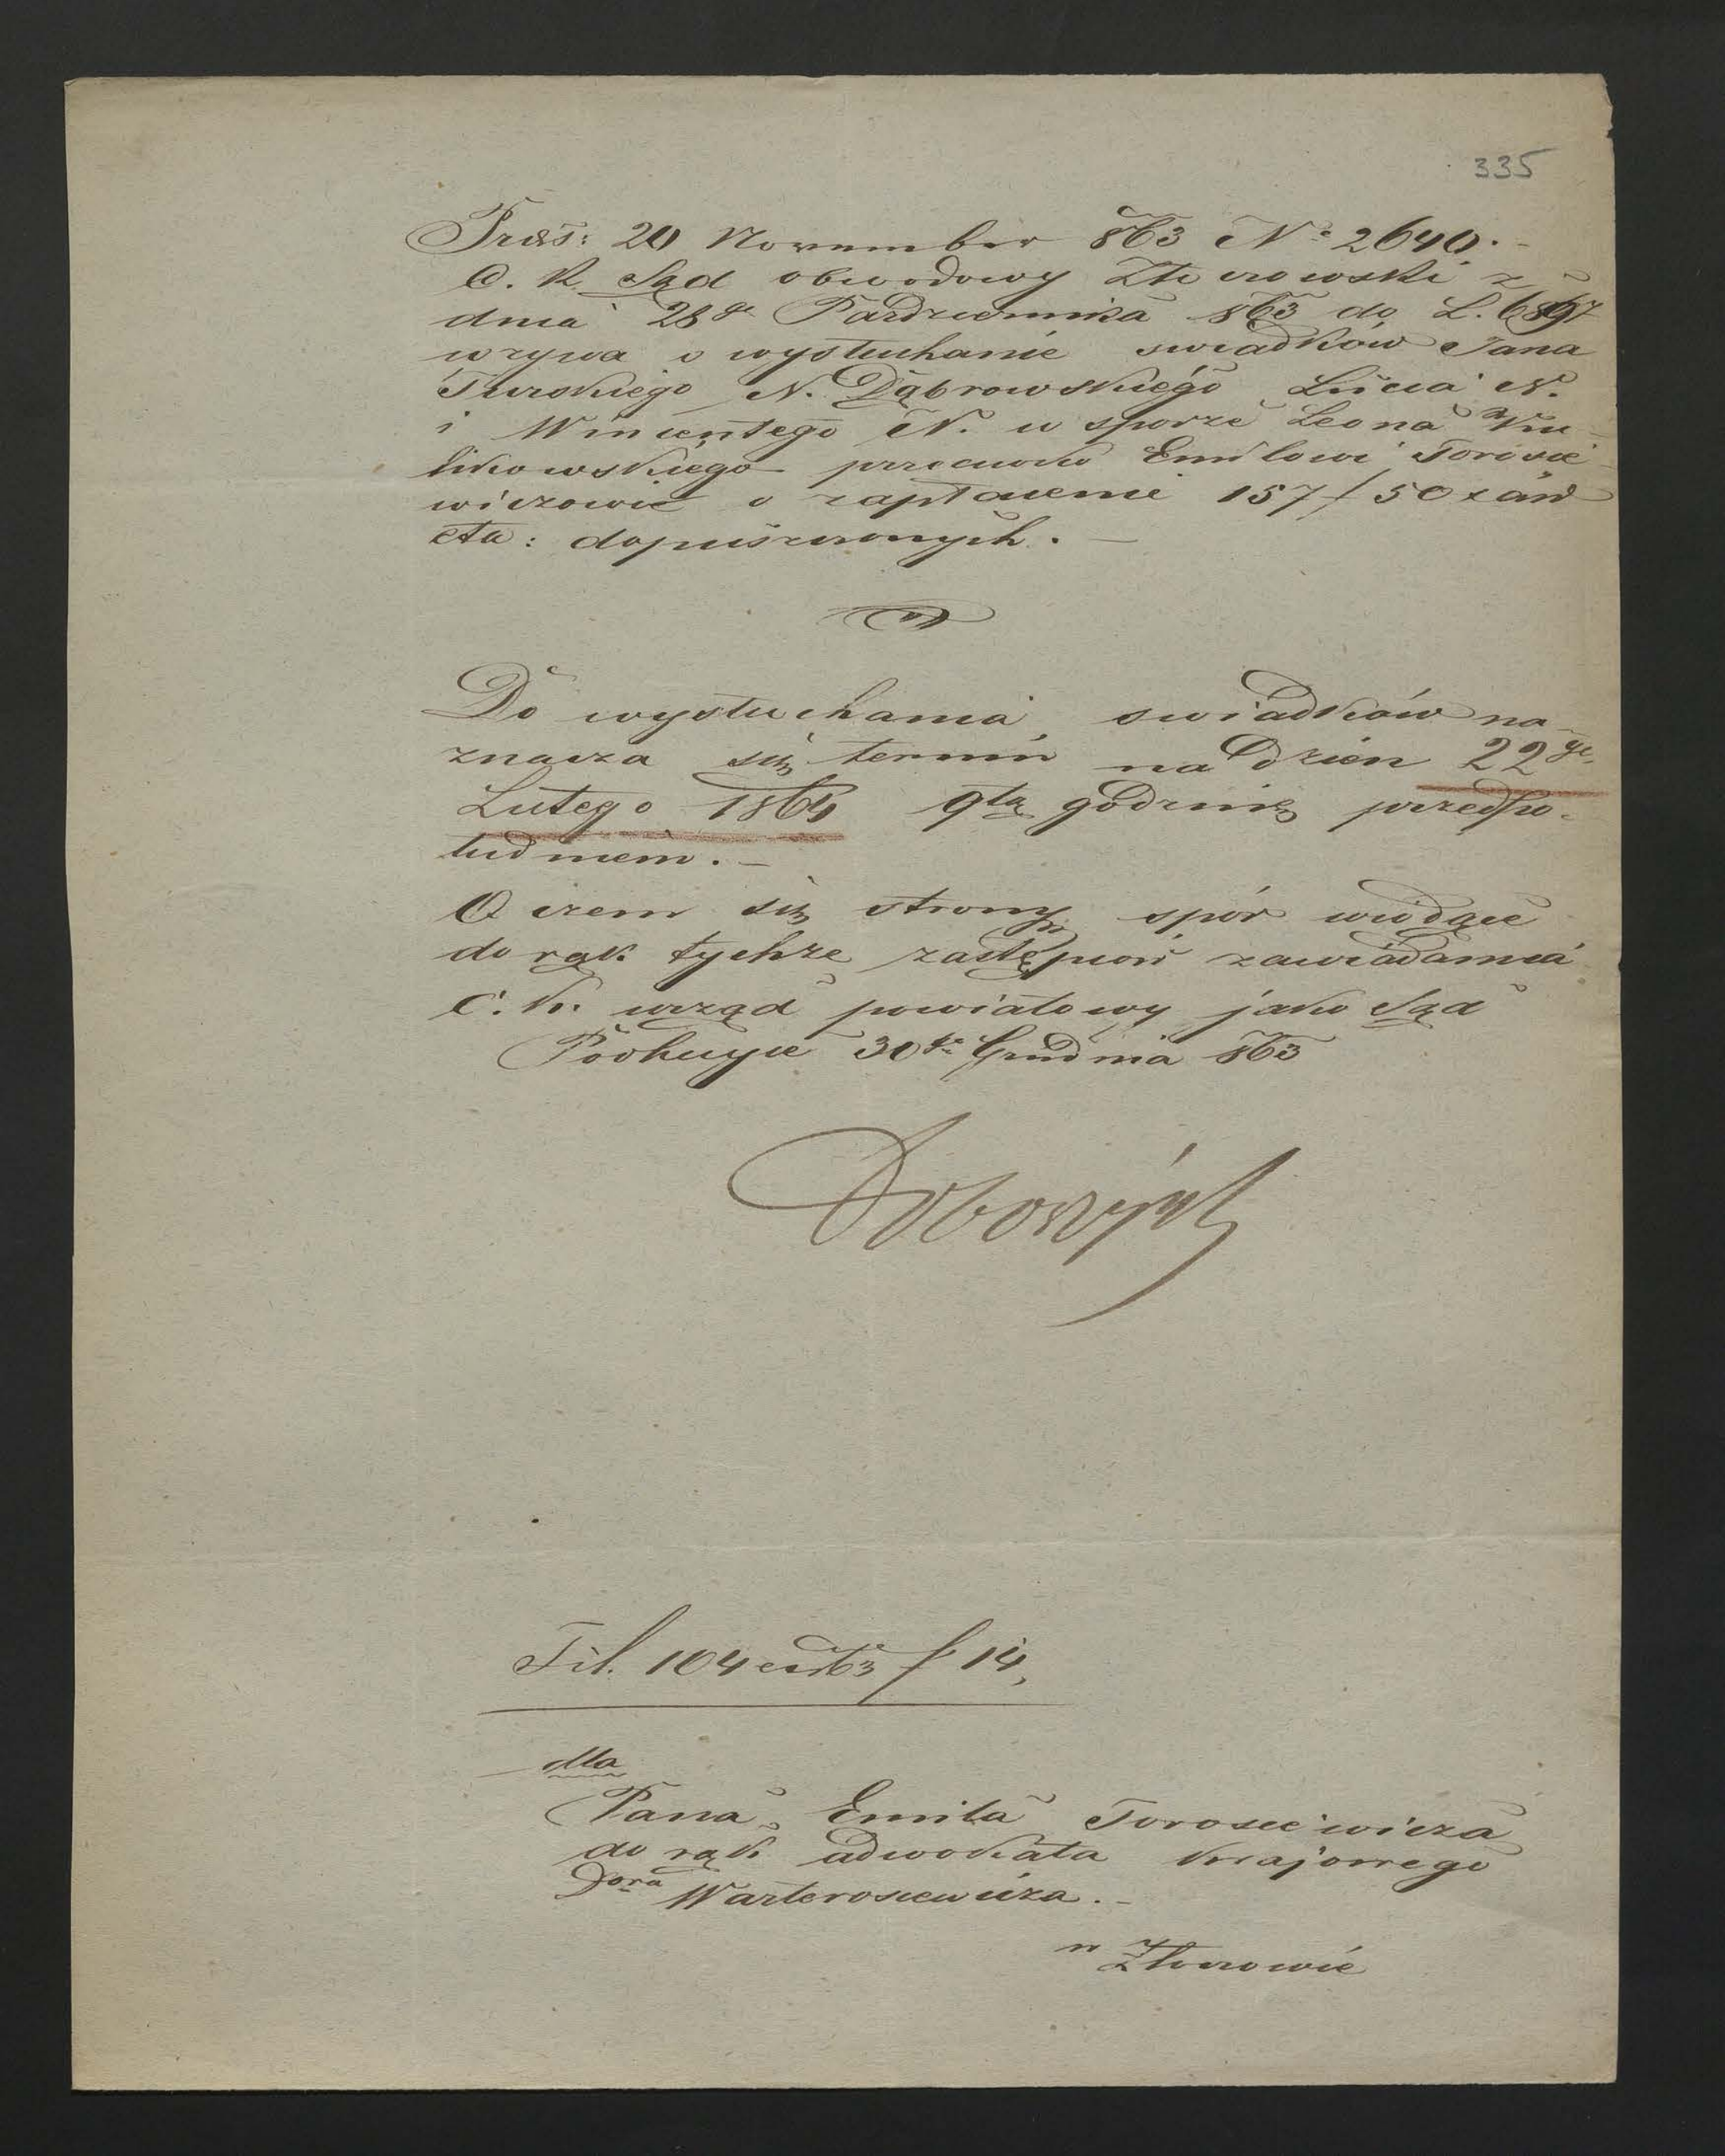 335
Präs: 20 November 863 No 2640.
C. k. Sąd obwodowy Złoczowski z
dnia 28go Pazdziernika 863 do L. 6897
wzywa o wysłuchanie swiadków Jana
Turskiego N. Dąbrowskiego
i Wincentego N. w sporze Leona Ku-
likowskiego przeciwko Emilowi Torosie-
wiczowi o zapłacenie 157 f 50 x
cta: dopuszczonych. —
Do wysłuchania swiadków na-
znacza się termin na dzien 22go
Lutego 1864 9tą godzinę przedpo-
łudniem. —
O czem się strony spór wiodące
do rąk tychże zastępców zawiadamia
C. k. urząd powiatowy jako Sąd
30go Grudnia 863
Fil. 104 ex 863 f 14,
dla
Pana Emila Torosiewicza
do rąk adwokata krajowego
Dora Warterosiewicza. —
w Złoczowie